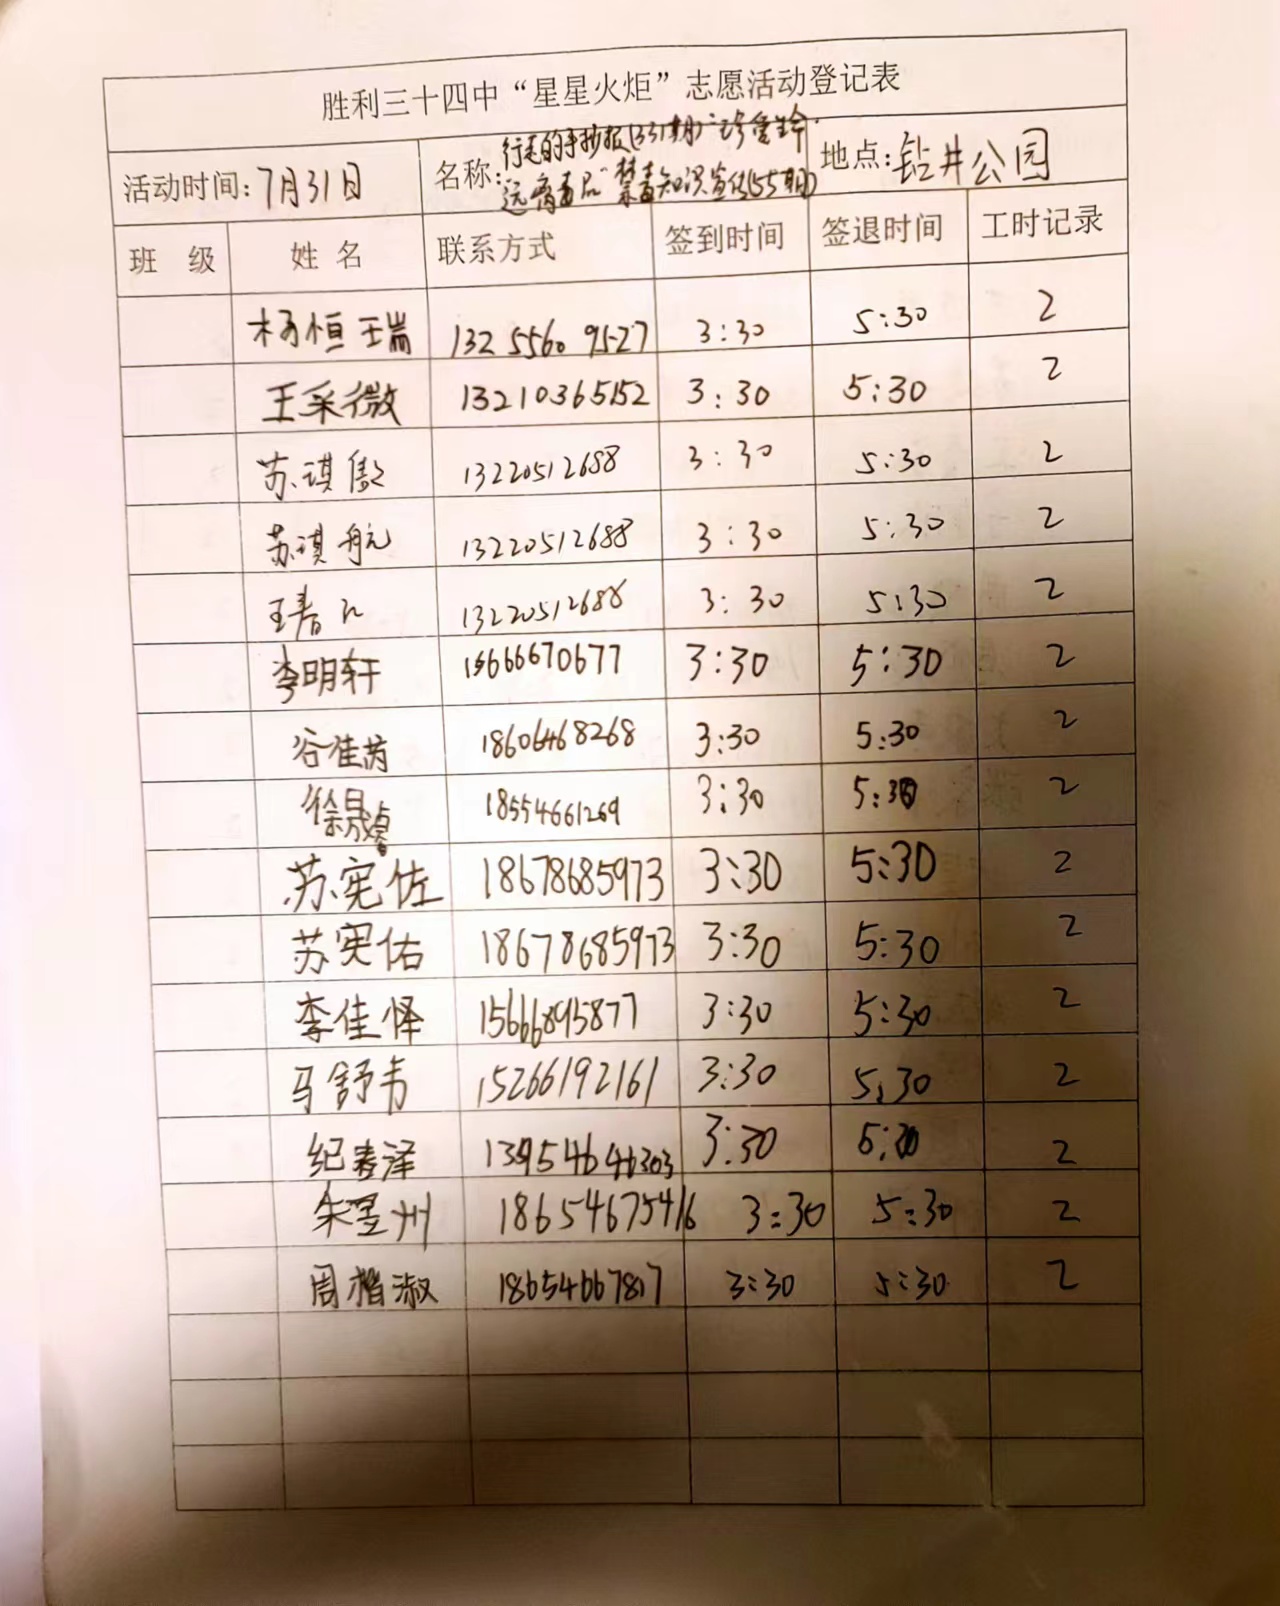 胜利三十四中“星星火炬”志愿活动登记表
活动时间:7月31日 名称:行走的手抄报(331期)“珍爱生命 远离毒品”禁毒知识宣传(55期) 地点:钻井公园
班 级 姓 名 联系方式 签到时间 签退时间 工时记录
杨恒瑞 132 5560 9527 3:30 5:30 2
王采微 13210365152 3:30 5:30 2
苏琪傲 13220512688 3:30 5:30 2
苏琪航 13220512688 3:30 5:30 2
13220512688 3:30 5:30 2
李明轩 15666670677 3:30 5:30 2
谷佳芮 18606468268 3:30 5:30 2
徐晟睿 18554661269 3:30 5:30 2
苏宪佐 18678685973 3:30 5:30 2
苏宪佑 18678685973 3:30 5:30 2
李佳怿 15666895877 3:30 5:30 2
马舒韦 15266192161 3:30 5:30 2
纪麦泽 13954646303 3:30 5:30 2
朱昱州 18654675416 3:30 5:30 2
周楷淑 18654667817 3:30 5:30 2